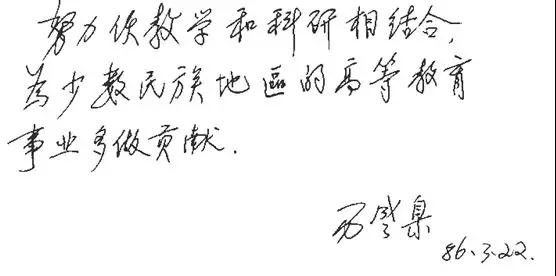 努力使教学和科研相结合,
為少数民族地區的高等教育
事业多做贡献.
86.3.22.